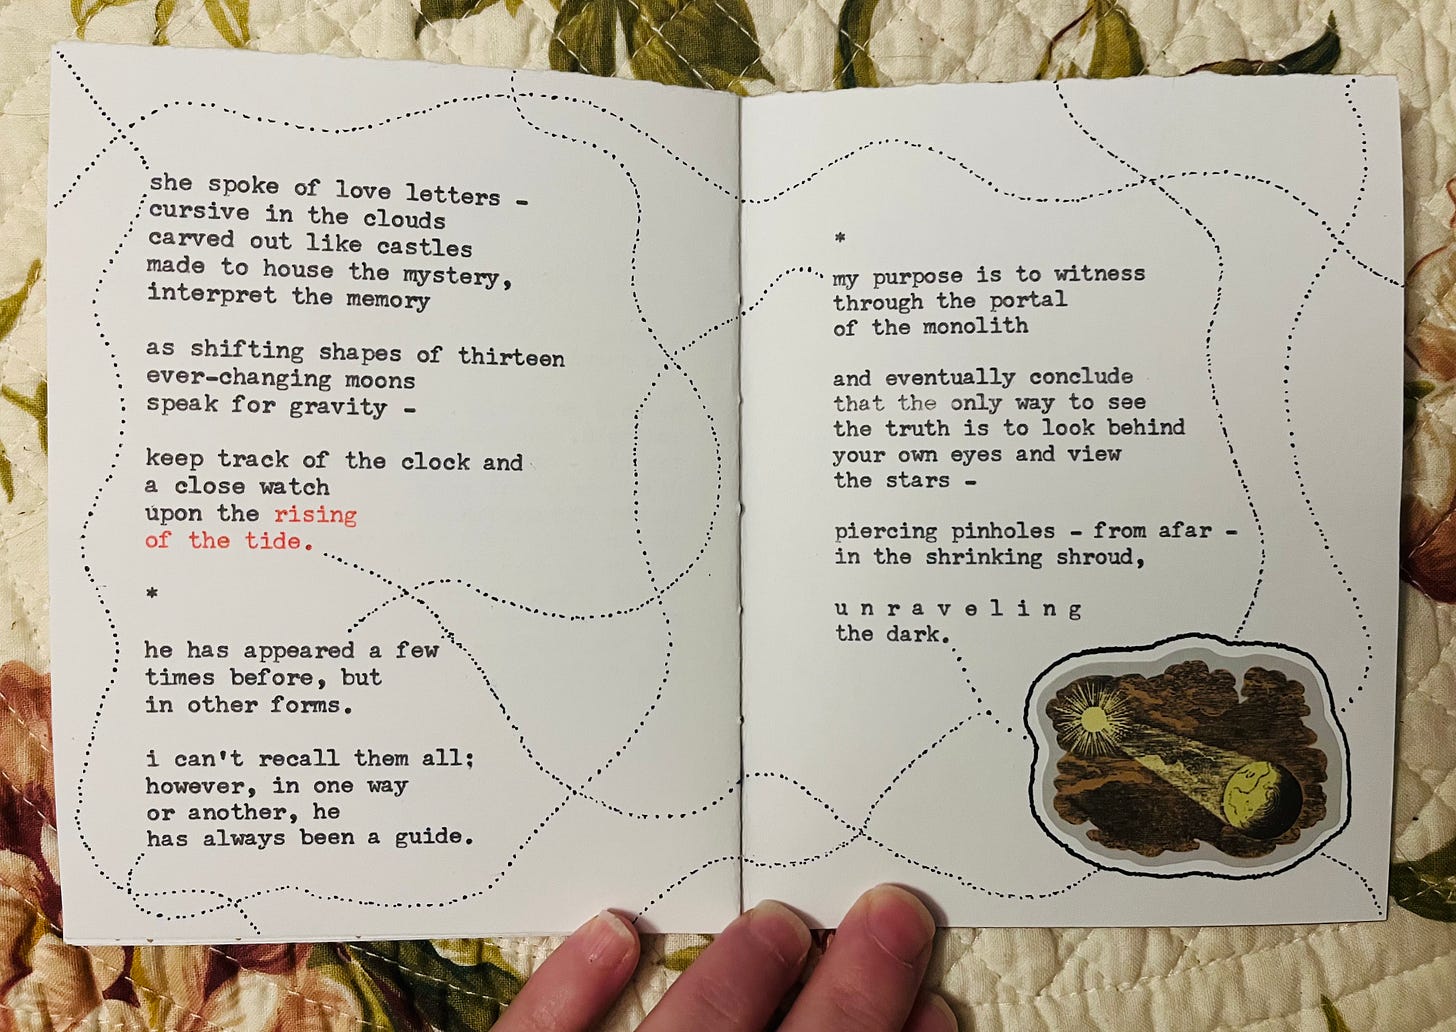 she spoke of love letters -
cursive in the clouds
carved out like castles
made to house the mystery,
interpret the memory
as shifting shapes of thirteen
ever-changing moons
speak for gravity -
keep track of the clock and
a close watch
upon the rising
of the tide.
*
he has appeared a few
times before, but
in other forms.
i can't recall them all;
however, in one way
or another, he
has always been a guide.
*
my purpose is to witness
through the portal
of the monolith
and eventually conclude
that the only way to see
the truth is to look behind
your own eyes and view
the stars -
piercing pinholes - from afar -
in the shrinking shroud,
u n r a v e l i n g
the dark.